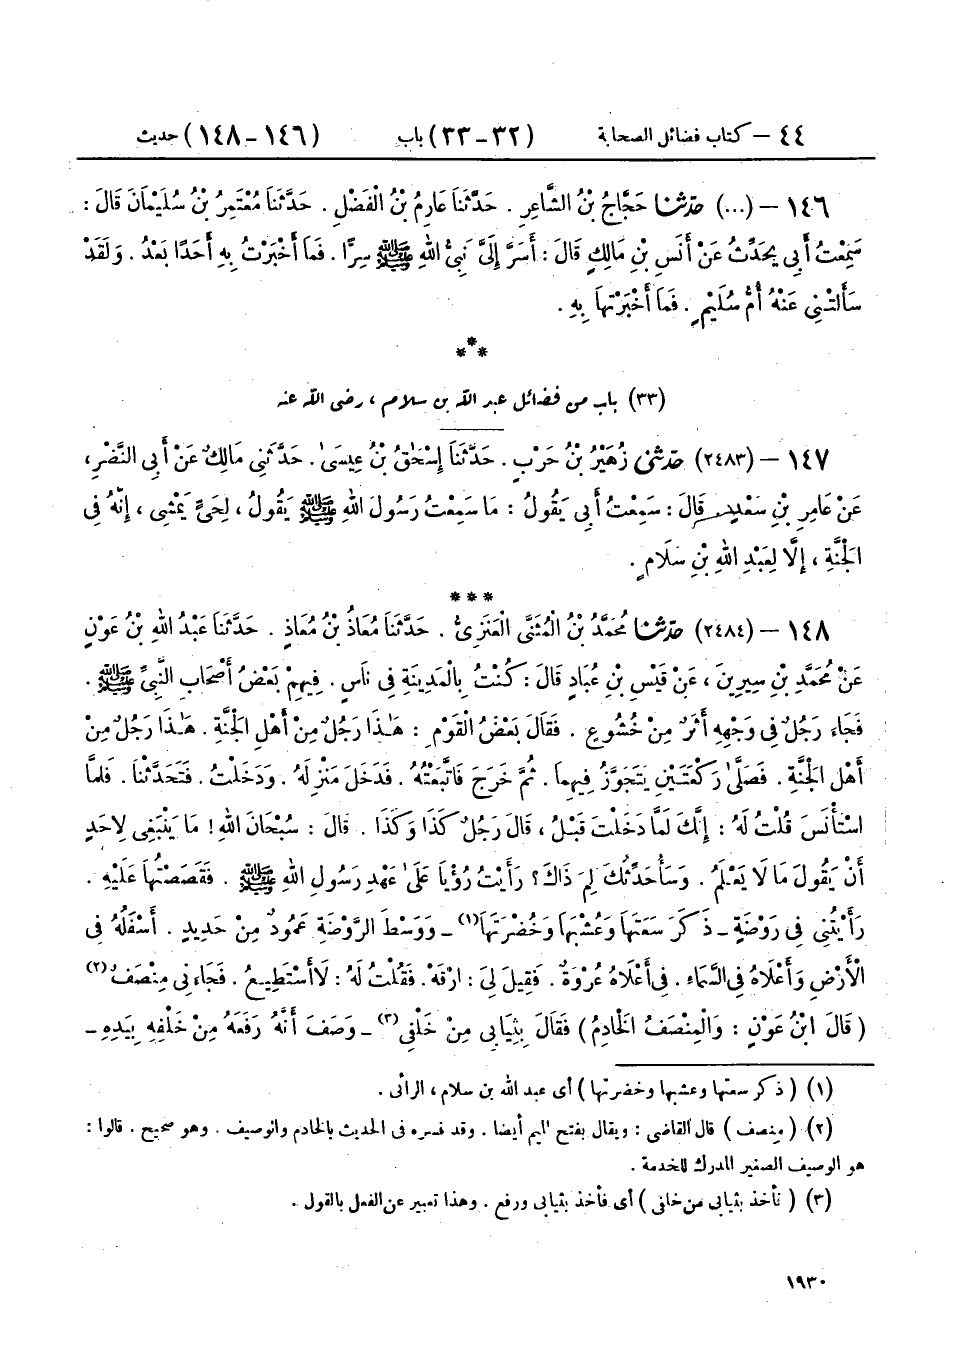 ٤٤ – كتاب فضائل الصحابة (٣٢-٣٣) باب (١٤٦-١٤٨) حديث
١٤٦ – (...) حدثنا حَجَّاجُ بْنُ الشَّاعِرِ . حَدَّثَنَا عَارِمُ بْنُ الْفَضْلِ . حَدَّثَنَا مُعْتَمِرُ بْنُ سُلَيْمَانَ قَالَ :
سَمِعْتُ أَبِي يُحَدِّثُ عَنْ أَنَسِ بْنِ مَالِكٍ قَالَ : أَسَرَّ إِلَيَّ نَبِيُّ اللهِ ﷺ سِرًّا . فَمَا أَخْبَرْتُ بِهِ أَحَدًا بَعْدُ . وَلَقَدْ
سَأَلَتْنِي عَنْهُ أُمُّ سُلَيْمٍ . فَمَا أَخْبَرْتُهَا بِهِ .
***
(٣٣) باب من فضائل عبد الله بن سلام ، رضى الله عنه
١٤٧ – (٢٤٨٣) حدثنى زُهَيْرُ بْنُ حَرْبٍ . حَدَّثَنَا إِسْحَاقُ بْنُ عِيسَىٰ . حَدَّثَنِي مَالِكٌ عَنْ أَبِي النَّضْرِ ،
عَنْ عَامِرِ بْنِ سَعْدٍ قَالَ : سَمِعْتُ أَبِي يَقُولُ : مَا سَمِعْتُ رَسُولَ اللهِ ﷺ يَقُولُ ، لِحَيٍّ يَمْشِى ، إِنَّهُ فِى
الْجَنَّةِ ، إِلَّا لِعَبْدِ اللهِ بْنِ سَلَامٍ .
***
١٤٨ – (٢٤٨٤) حدثنا مُحَمَّدُ بْنُ الْمُثَنَّى الْعَنَزِيُّ . حَدَّثَنَا مُعَاذُ بْنُ مُعَاذٍ . حَدَّثَنَا عَبْدُ اللهِ بْنُ عَوْنٍ
عَنْ مُحَمَّدِ بْنِ سِيرِينَ ، عَنْ قَيْسِ بْنِ عُبَادٍ قَالَ : كُنْتُ بِالْمَدِينَةِ فِي نَاسٍ . فِيهِمْ بَعْضُ أَصْحَابِ النَّبِيِّ ﷺ .
فَجَاءَ رَجُلٌ فِي وَجْهِهِ أَثَرٌ مِنْ خُشُوعٍ . فَقَالَ بَعْضُ الْقَوْمِ : هَٰذَا رَجُلٌ مِنْ أَهْلِ الْجَنَّةِ . هَٰذَا رَجُلٌ مِنْ
أَهْلِ الْجَنَّةِ . فَصَلَّىٰ رَكْعَتَيْنِ يَتَجَوَّزُ فِيهِمَا . ثُمَّ خَرَجَ فَاتَّبَعْتُهُ . فَدَخَلَ مَنْزِلَهُ . وَدَخَلْتُ . فَتَحَدَّثْنَا . فَلَمَّا
اسْتَأْنَسَ قُلْتُ لَهُ : إِنَّكَ لَمَّا دَخَلْتَ قَبْلُ ، قَالَ رَجُلٌ كَذَا وَكَذَا . قَالَ : سُبْحَانَ اللهِ ! مَا يَنْبَغِى لِأَحَدٍ
أَنْ يَقُولَ مَا لَا يَعْلَمُ . وَسَأُحَدِّثُكَ لِمَ ذَاكَ ؟ رَأَيْتُ رُؤْيَا عَلَىٰ عَهْدِ رَسُولِ اللهِ ﷺ . فَقَصَصْتُهَا عَلَيْهِ .
رَأَيْتُنِي فِي رَوْضَةٍ – ذَكَرَ سَعَتَهَا وَعُشْبَهَا وَخُضْرَتَهَا(١) – وَوَسْطَ الرَّوْضَةِ عَمُودٌ مِنْ حَدِيدٍ . أَسْفَلُهُ فِى
الْأَرْضِ وَأَعْلَاهُ فِي السَّمَاءِ . فِي أَعْلَاهُ عُرْوَةٌ . فَقِيلَ لِيَ : ارْقَهْ . فَقُلْتُ لَهُ : لَا أَسْتَطِيعُ . فَجَاءَنِي مِنْصَفٌ(٢)
( قَالَ ابْنُ عَوْنٍ : وَالْمِنْصَفُ الْخَادِمُ ) فَقَالَ بِثِيَابِي مِنْ خَلْفِي(٣) – وَصَفَ أَنَّهُ رَفَعَهُ مِنْ خَلْفِهِ بِيَدِهِ –
(١) ( ذكر سعتها وعشبها وخضرتها ) أى عبد الله بن سلام ، الرائى .
(٢) ( منصف ) قال القاضى : ويقال بفتح الميم أيضا . وقد فسره فى الحديث بالخادم والوصيف . وهو صحيح . قالوا :
هو الوصيف الصغير المدرك للخدمة .
(٣) ( فأخذ بثيابى من خلفى ) أى فأخذ بثيابى ورفع . وهذا تعبير عن الفعل بالقول .
١٩٣٠